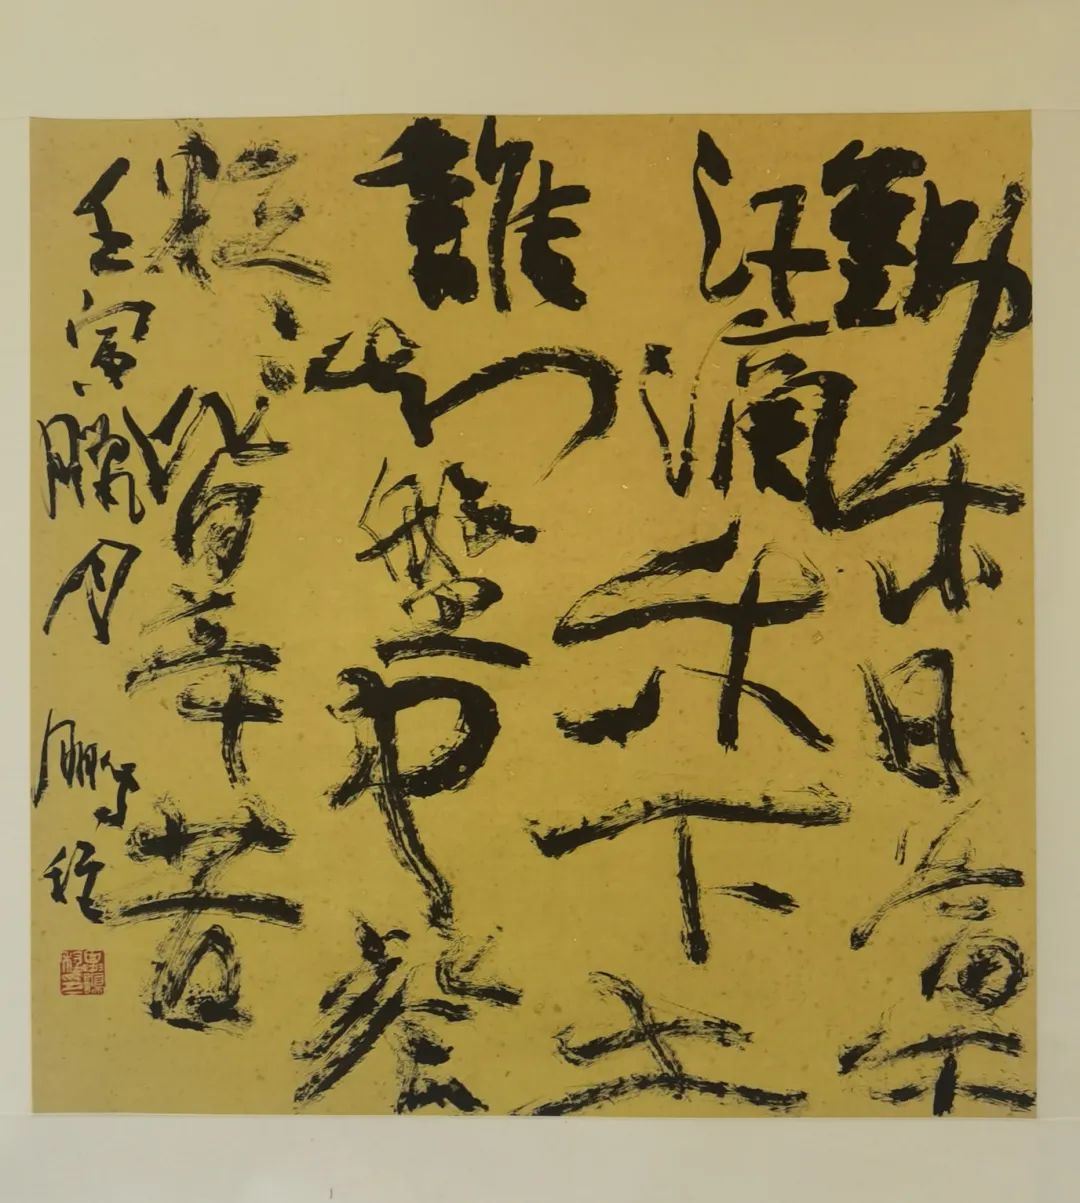 鋤禾日當午
汗滴禾下土
誰知盤中餐
粒〻皆辛苦
壬寅臘月 鵬程